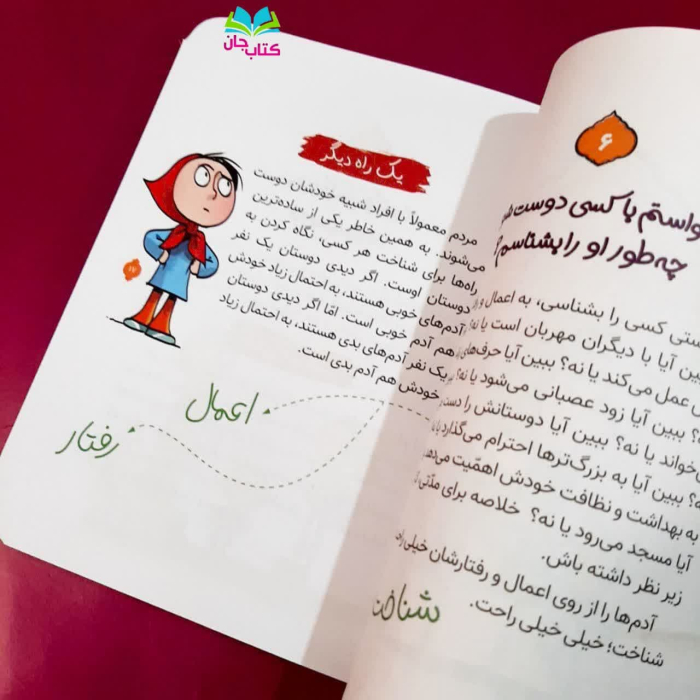 کتاب جان
۶
خواستم با کسی دوست
چه‌طور او را بشناسم
کسی را بشناسی، به اعمال و
آیا با دیگران مهربان است یا نه؟
عمل می‌کند یا نه؟ ببین آیا حرف‌های
ببین آیا زود عصبانی می‌شود یا نه؟
یا نه؟ ببین آیا دوستانش را دست
ببین آیا به بزرگ‌ترها احترام می‌گذارد یا
به بهداشت و نظافت خودش اهمّیت می‌دهد
آیا مسجد می‌رود یا نه؟ خلاصه برای مدّتی
زیر نظر داشته باش.
آدم‌ها را از روی اعمال و رفتارشان خیلی
شناخت؛ خیلی خیلی راحت.
شناخت
یک راه دیگر
مردم معمولاً با افراد شبیه خودشان دوست
می‌شوند. به همین خاطر یکی از ساده‌ترین
راه‌ها برای شناخت هر کسی، نگاه کردن به
دوستان اوست. اگر دیدی دوستان یک نفر
آدم‌های خوبی هستند، به احتمال زیاد خودش
هم آدم خوبی است. امّا اگر دیدی دوستان
یک نفر آدم‌های بدی هستند، به احتمال زیاد
خودش هم آدم بدی است.
۱۷
اعمال
رفتار